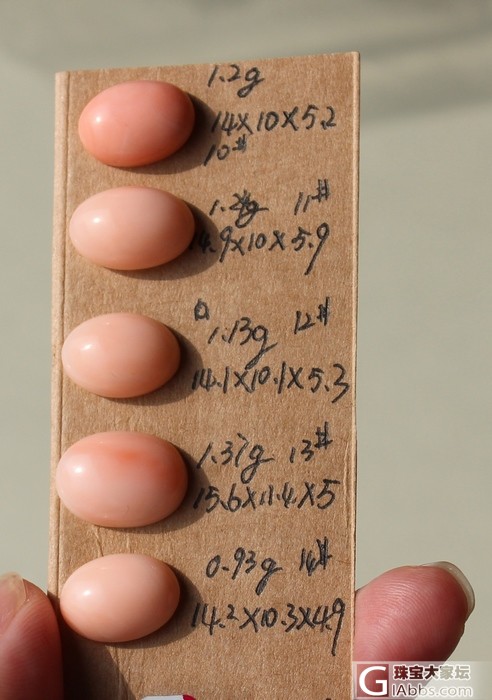 1.2g
14X10X5.2
10#
11#
14.9X10X5.9
1.13g 12#
14.1X10.1X5.3
1.37g 13#
15.6X11.4X5
0.93g 14#
14.2X10.3X4.9
G 珠宝大家坛
GIAbbs.com